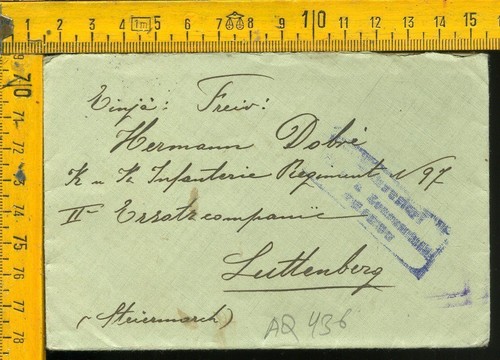 1 2 3 4 5 6 7 8 9 10 11 12 13 14 15
1m
70 71 72 73 74 75 76 77 78
Einjä: Freiv:
Hermann Dobré
K u K Infanterie Regiment N 97
II Ersatzcompanie
Luttenberg
(Steiermarch)
AQ 436